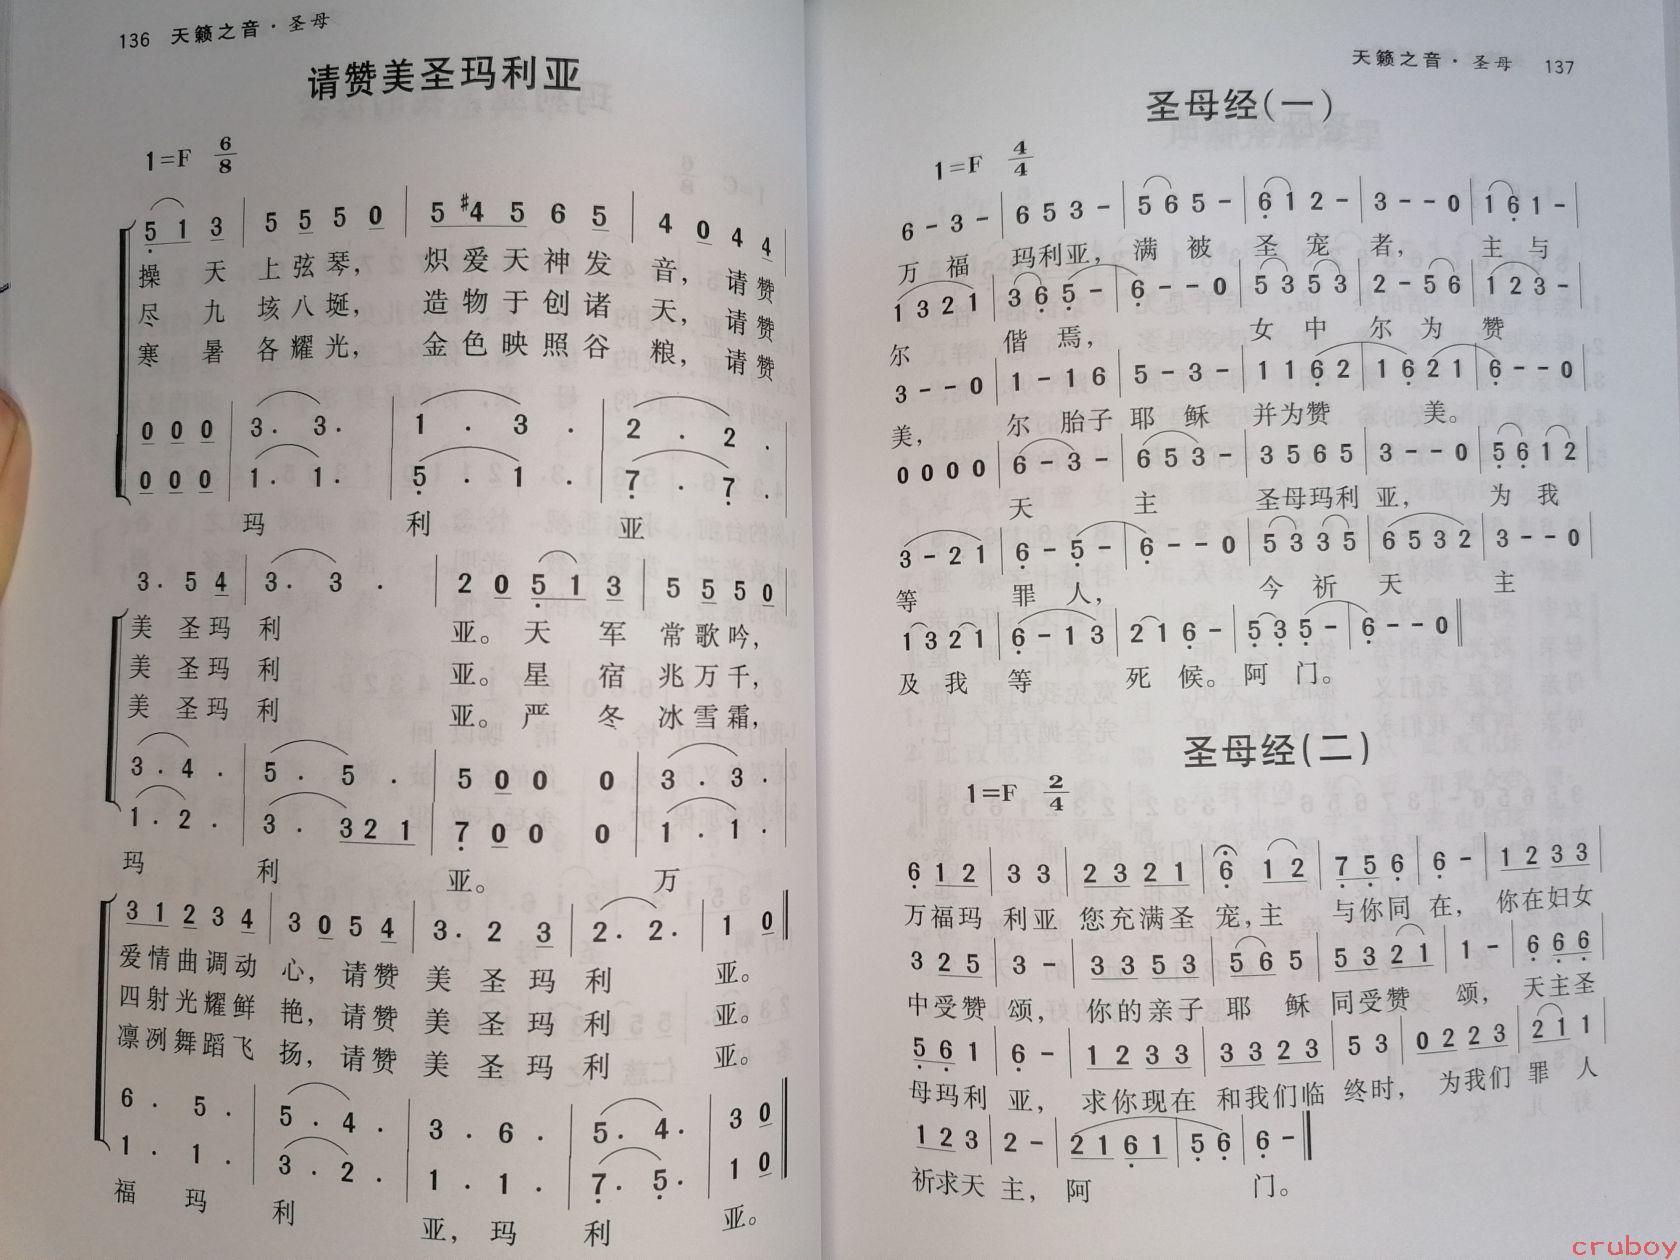 136 天籁之音·圣母
请赞美圣玛利亚
1=F 6/8
5 1 3 | 5 5 5 0 | 5 #4 5 6 5 | 4 0 4 4 |
操 天 上弦琴， 炽爱天神发 音，请赞
尽 九 垓八埏， 造物于创诸 天，请赞
寒 暑 各耀光， 金色映照谷 粮，请赞
0 0 0 | 3. 3. | 1 . 3 . | 2 . 2 .
0 0 0 | 1. 1. | 5 . 1 . | 7 . 7 .
玛 利 亚
3. 5 4 | 3. 3 . | 2 0 5 1 3 | 5 5 5 0
美 圣玛 利 亚。天 军 常歌吟，
美 圣玛 利 亚。星 宿 兆万千，
美 圣玛 利 亚。严 冬 冰雪霜，
3. 4. | 5. 5. | 5 0 0 0 | 3. 3.
1. 2. | 3. 3 2 1 | 7 0 0 0 | 1. 1.
玛 利 亚。 万
3 1 2 3 4 | 3 0 5 4 | 3. 2 3 | 2. 2. | 1 0 ‖
爱情曲调动 心，请赞 美 圣玛 利 亚。
四射光耀鲜 艳，请赞 美 圣玛 利 亚。
凛冽舞蹈飞 扬，请赞 美 圣玛 利 亚。
6 . 5 . | 5 . 4 . | 3 . 6 . | 5. 4. | 3 0 ‖
1 . 1 . | 3 . 2 . | 1 . 1 . | 7. 5. | 1 0 ‖
福 玛 利 亚，玛 利 亚。
天籁之音·圣母 137
圣母经(一)
1=F 4/4
6 - 3 - | 6 5 3 - | 5 6 5 - | 6 1 2 - | 3 - - 0 | 1 6 1 - |
万 福 玛利亚， 满 被 圣宠 者， 主 与
1 3 2 1 | 3 6 5 - | 6 - - 0 | 5 3 5 3 | 2 - 5 6 | 1 2 3 -
尔 偕 焉， 女 中 尔 为 赞
3 - - 0 | 1 - 1 6 | 5 - 3 - | 1 1 6 2 | 1 6 2 1 | 6 - - 0
美， 尔 胎子 耶 稣 并为赞 美。
0 0 0 0 | 6 - 3 - | 6 5 3 - | 3 5 6 5 | 3 - - 0 | 5 6 1 2
天 主 圣母玛利 亚， 为 我
3 - 2 1 | 6 - 5 - | 6 - - 0 | 5 3 3 5 | 6 5 3 2 | 3 - - 0
等 罪 人， 今 祈 天 主
1 3 2 1 | 6 - 1 3 | 2 1 6 - | 5 3 5 - | 6 - - 0 ‖
及 我 等 死 候。阿 门。
圣母经(二)
1=F 2/4
6 1 2 | 3 3 | 2 3 2 1 | 6 1 2 | 7 5 6 | 6 - | 1 2 3 3 |
万福玛 利亚 您充满圣 宠，主 与你同 在， 你在妇女
3 2 5 | 3 - | 3 3 5 3 | 5 6 5 | 5 3 2 1 | 1 - | 6 6 6
中受赞 颂， 你的亲子 耶 稣 同受赞 颂， 天主圣
5 6 1 | 6 - | 1 2 3 3 | 3 3 2 3 | 5 3 | 0 2 2 3 | 2 1 1
母玛利 亚， 求你现在 和我们临 终时， 为我们 罪 人
1 2 3 | 2 - | 2 1 6 1 | 5 6 | 6 - ‖
祈求天 主， 阿 门。
cruboy